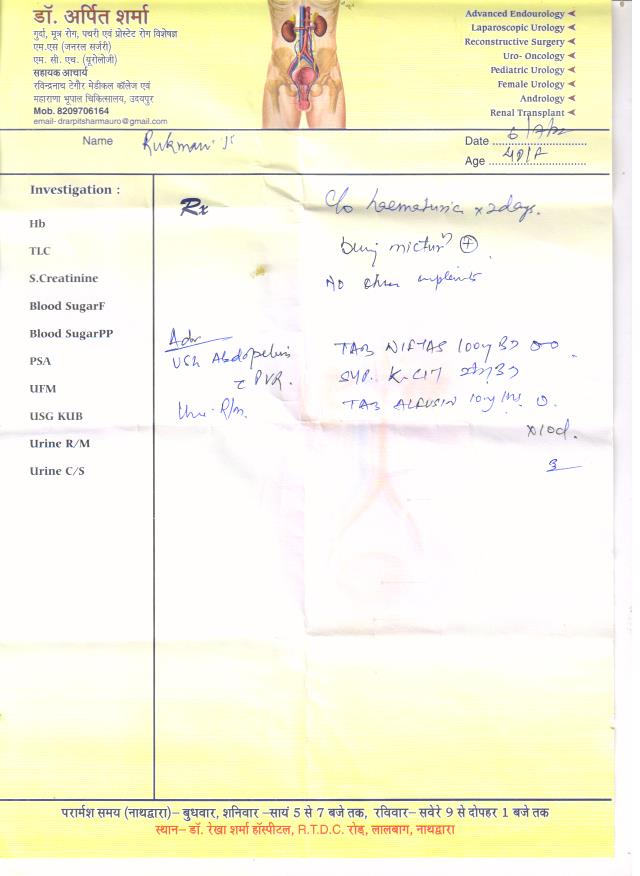 डॉ. अर्पित शर्मा
गुर्दा, मूत्र रोग, पथरी एवं प्रोस्टेट रोग विशेषज्ञ
एम.एस (जनरल सर्जरी)
एम. सी. एच. (यूरोलोजी)
सहायक आचार्य
रविन्द्रनाथ टैगौर मेडीकल कॉलेज एवं
महाराणा भूपाल चिकित्सालय, उदयपुर
Mob. 8209706164
email- drarpitsharmauro@gmail.com
Advanced Endourology
Laparoscopic Urology
Reconstructive Surgery
Uro- Oncology
Pediatric Urology
Female Urology
Andrology
Renal Transplant
Name Rukmani
Date
Age
Investigation :
Hb
TLC
S.Creatinine
Blood SugarF
Blood SugarPP
PSA
UFM
USG KUB
Urine R/M
Urine C/S
Rx
C/o haematuria x 2days.
No other complaints
Adv
USG Abdopelvis
c PVR.
Urine R/m.
TAB NIFTAS 100mg BD
SYP. K-CIT
TAB ALFUSIN 10mg
x10d.
परार्मश समय (नाथद्वारा)– बुधवार, शनिवार –सायं 5 से 7 बजे तक, रविवार– सवेरे 9 से दोपहर 1 बजे तक
स्थान– डॉ. रेखा शर्मा हॉस्पीटल, R.T.D.C. रोड़, लालबाग, नाथद्वारा